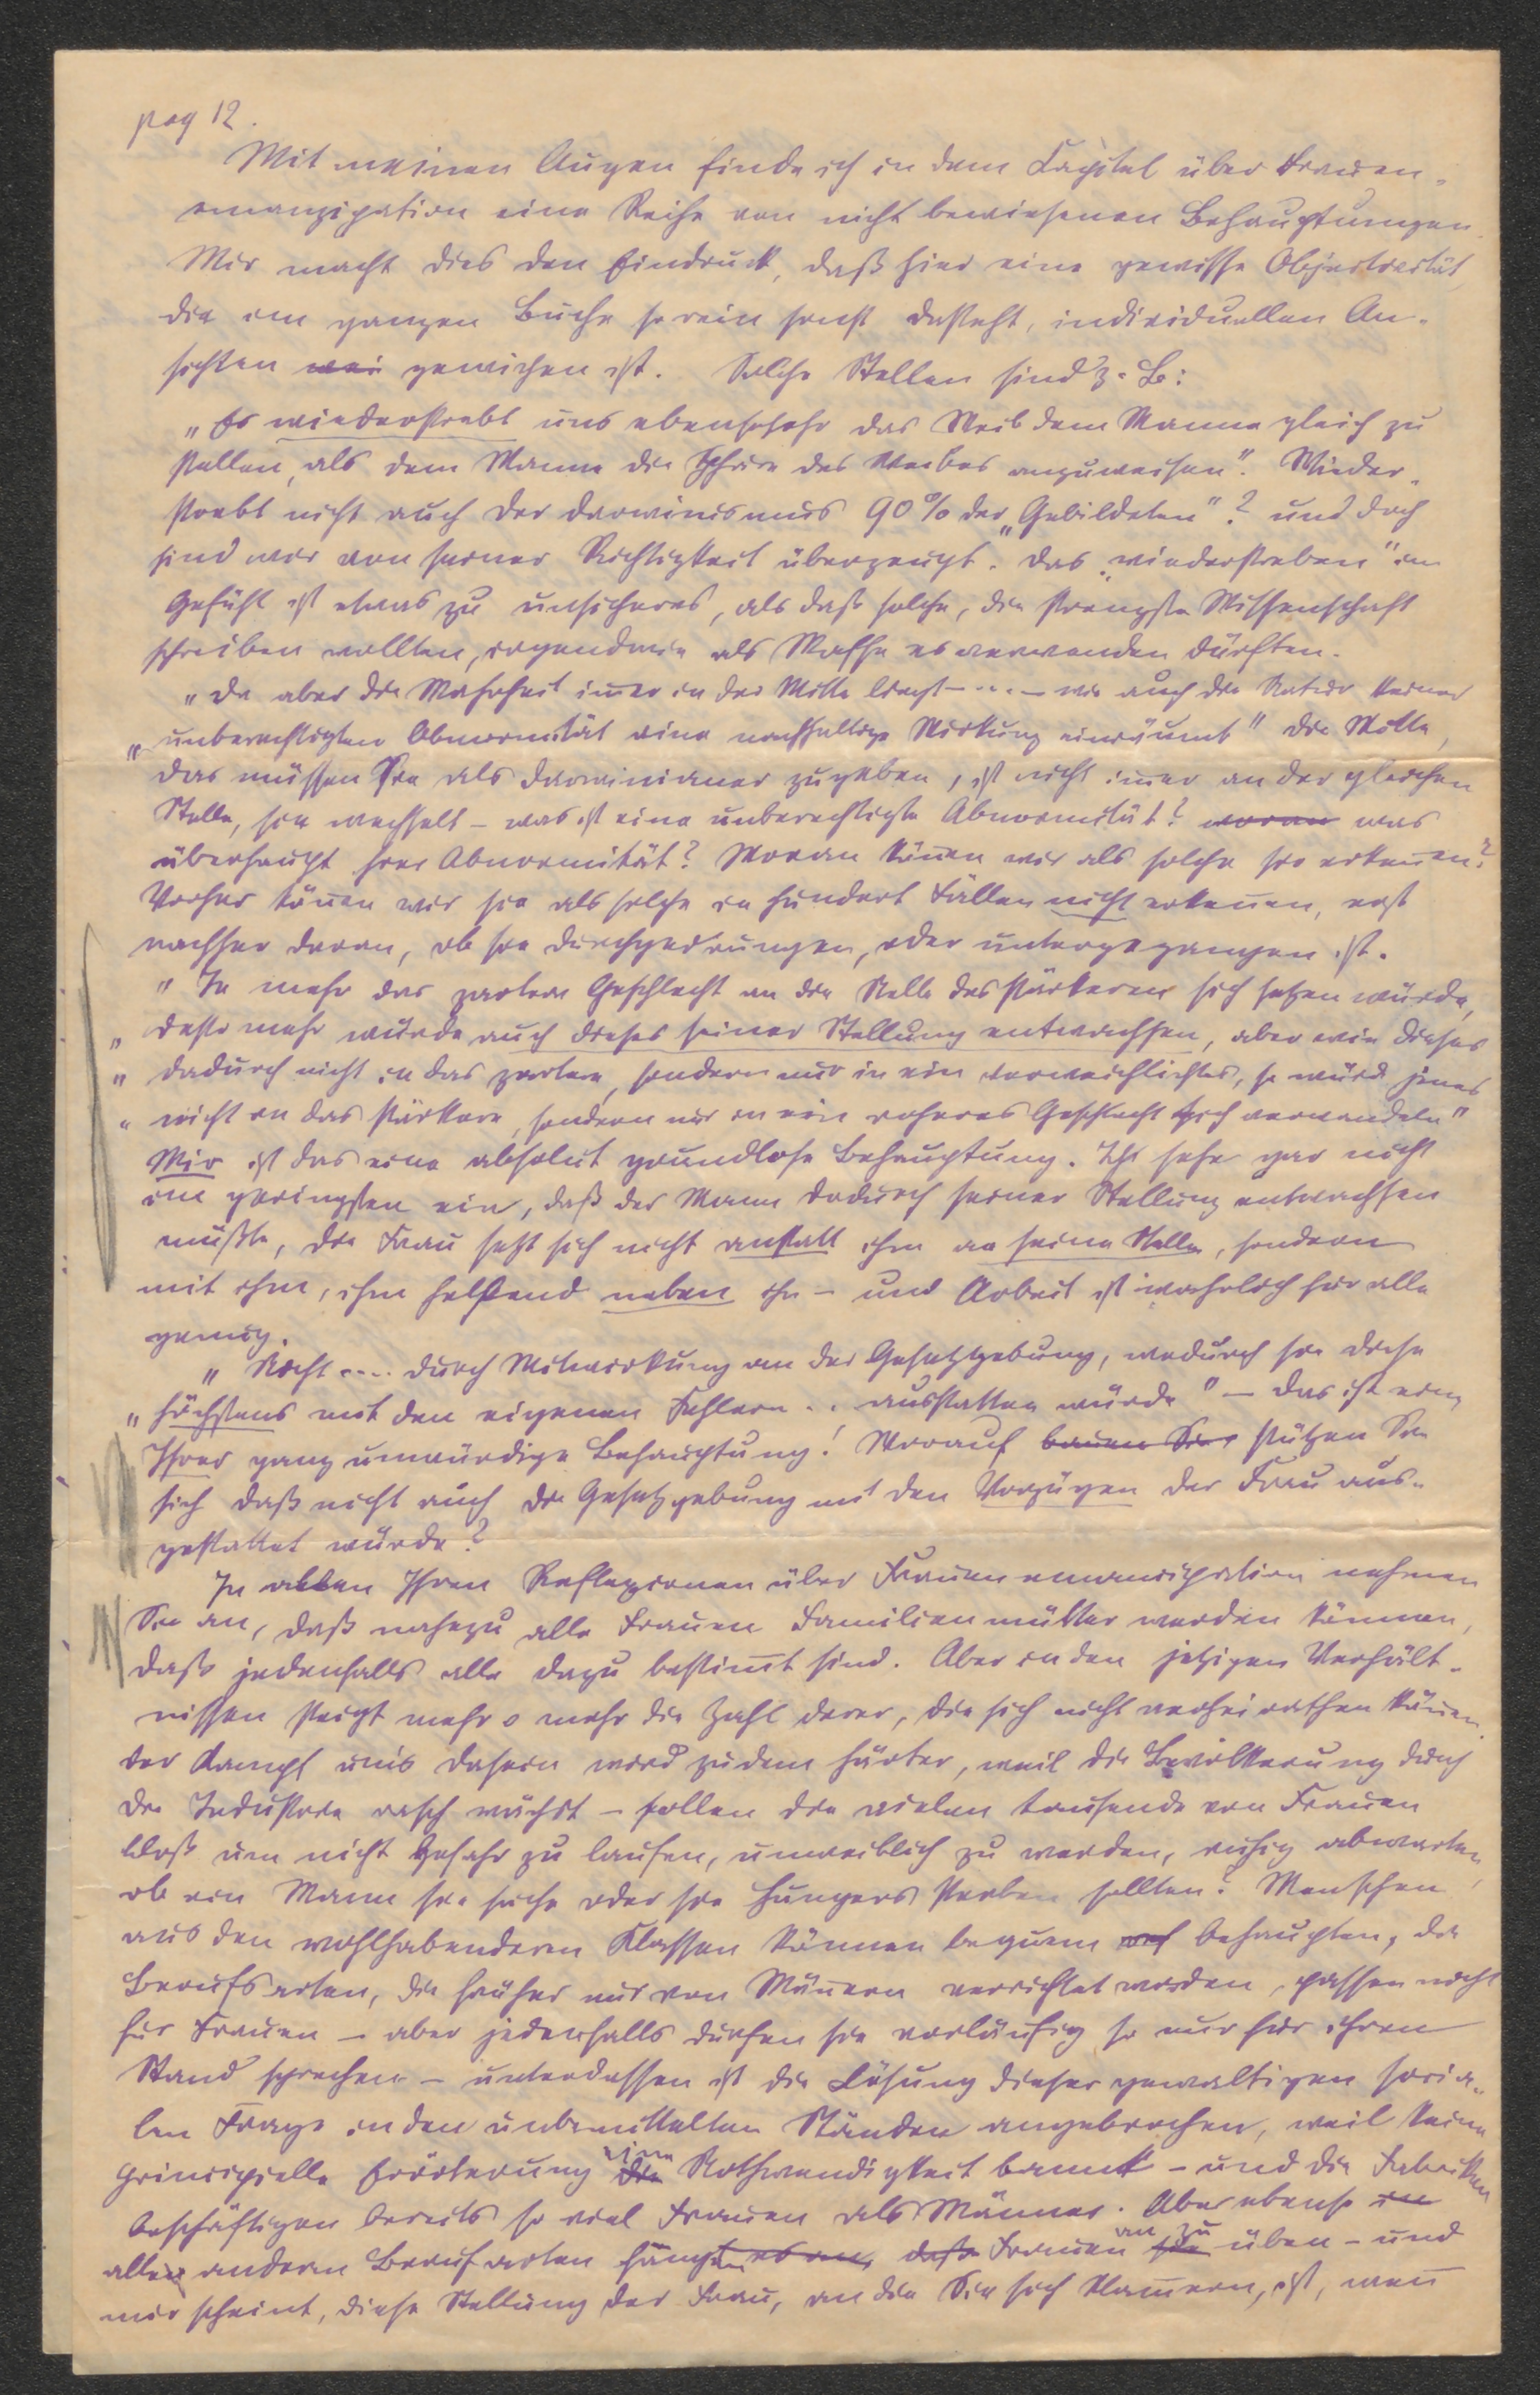 pag 12.
Mit meinen Augen finde ich in dem Capitel über Frauen-
emanzipation eine Reihe von nicht bewiesenen Behauptungen.
Mir macht dies den Eindruck, daß hier eine gewisse Objectivität,
die im ganzen Buche so rein sonst dasteht, individuellen An-
sichten wei gewichen ist. Solche Stellen sind z. B:
„Es wiederstrebt uns ebensosehr das Weib dem Manne gleich zu
stellen, als dem Manne die Sphäre des Weibes anzuweisen". Wieder-
strebt nicht auch der Darwinismus 90% der „Gebildeten"? und doch
sind wir von seiner Richtigkeit überzeugt. Das „wiederstreben" im
Gefühl ist etwas zu unsicheres, als daß solche, die strengste Wissenschaft
schreiben wollten, irgendwie als Waffe es verwenden dürften.
„Da aber die Wahrheit im̅er in der Mitte liegt – ... – wie auch die Natur keiner
„unberechtigten Abnormität eine nachhaltige Wirkung einräumt" die Mitte,
das müssen Sie als Darwinianer zugeben, ist nicht im̅er an der gleichen
Stelle, sie wechselt – was ist eine unberechtigte Abnormität? woran was
überhaupt hier Abnormität? Woran kön̅en wir als solche sie erken̅en?
Vorher kön̅en wir sie als solche in hundert Fällen nicht erken̅en, erst
nachher daran, ob sie durchgedrungen, oder untergegangen ist.
„Je mehr das zartere Geschlecht an die Stelle des stärkeren sich setzen würde,
„ desto mehr würde auch dieses seiner Stellung entwachsen, aber wie dieses
„ dadurch nicht in das zartere, sondern nur in ein verweichlichtes, so würde jenes
„ nicht in das stärkere, sondern nur in ein roheres Geschlecht sich verwandeln"
Mir ist das eine absolut grundlose Behauptung. Ich sehe gar nicht
im geringsten ein, daß der Mann dadurch seiner Stellung entwachsen
müßte, die Frau setzt sich nicht anstatt ihm an seine Stelle, sondern
mit ihm, ihm helfend neben ihn – und Arbeit ist wahrlich für alle
genug.
„Nicht .... durch Mitwirkung an der Gesetzgebung, wodurch sie diese
„höchstens mit den eigenen Fehlern .. ausstatten würde" – das ist eine
Ihrer ganz unwürdige Behauptung! Worauf bauen Sie stützen Sie
sich daß nicht auch die Gesetzgebung mit den Vorzügen der Frau aus-
gestattet würde?
In allen Ihren Reflexionen über Frauenemancipation nehmen
Sie an, daß nahezu alle Frauen Familienmütter werden können,
daß jedenfalls alle dazu bestim̅t sind. Aber in den jetzigen Verhält-
nissen steigt mehr u mehr die Zahl derer, die sich nicht verheirathen kön̅en,
der Kampf um's Dasein wird zudem härter, weil die Bevölkerung durch
die Industrie rasch wächst – sollen die vielen tausende von Frauen
bloß um nicht Gefahr zu laufen, unweiblich zu werden, ruhig abwarten,
ob ein Mann sie suche oder sie Hungers sterben sollten? Menschen
aus den wohlhabenderen Klassen können bequem behaupten, die
Berufsarten, die früher nur von Män̅ern verrichtet worden, passen nicht
für Frauen – aber jedenfalls dürfen sie vorläufig so nur für ihren
Stand sprechen – unterdessen ist die Lösung dieser gewaltigen socia-
len Frage in den unbemittelten Ständen angebrochen, weil keine
principielle Erörterung die eine Nothwendigkeit bannt – und die Fabriken
beschäftigen bereits so viel Frauen als Männer. Aber ebenso in
allen anderen Berufsarten daß Frauen sie an zu üben – und
mir scheint, diese Stellung der Frau, an die Sie sich klam̅ern, ist, wen̅